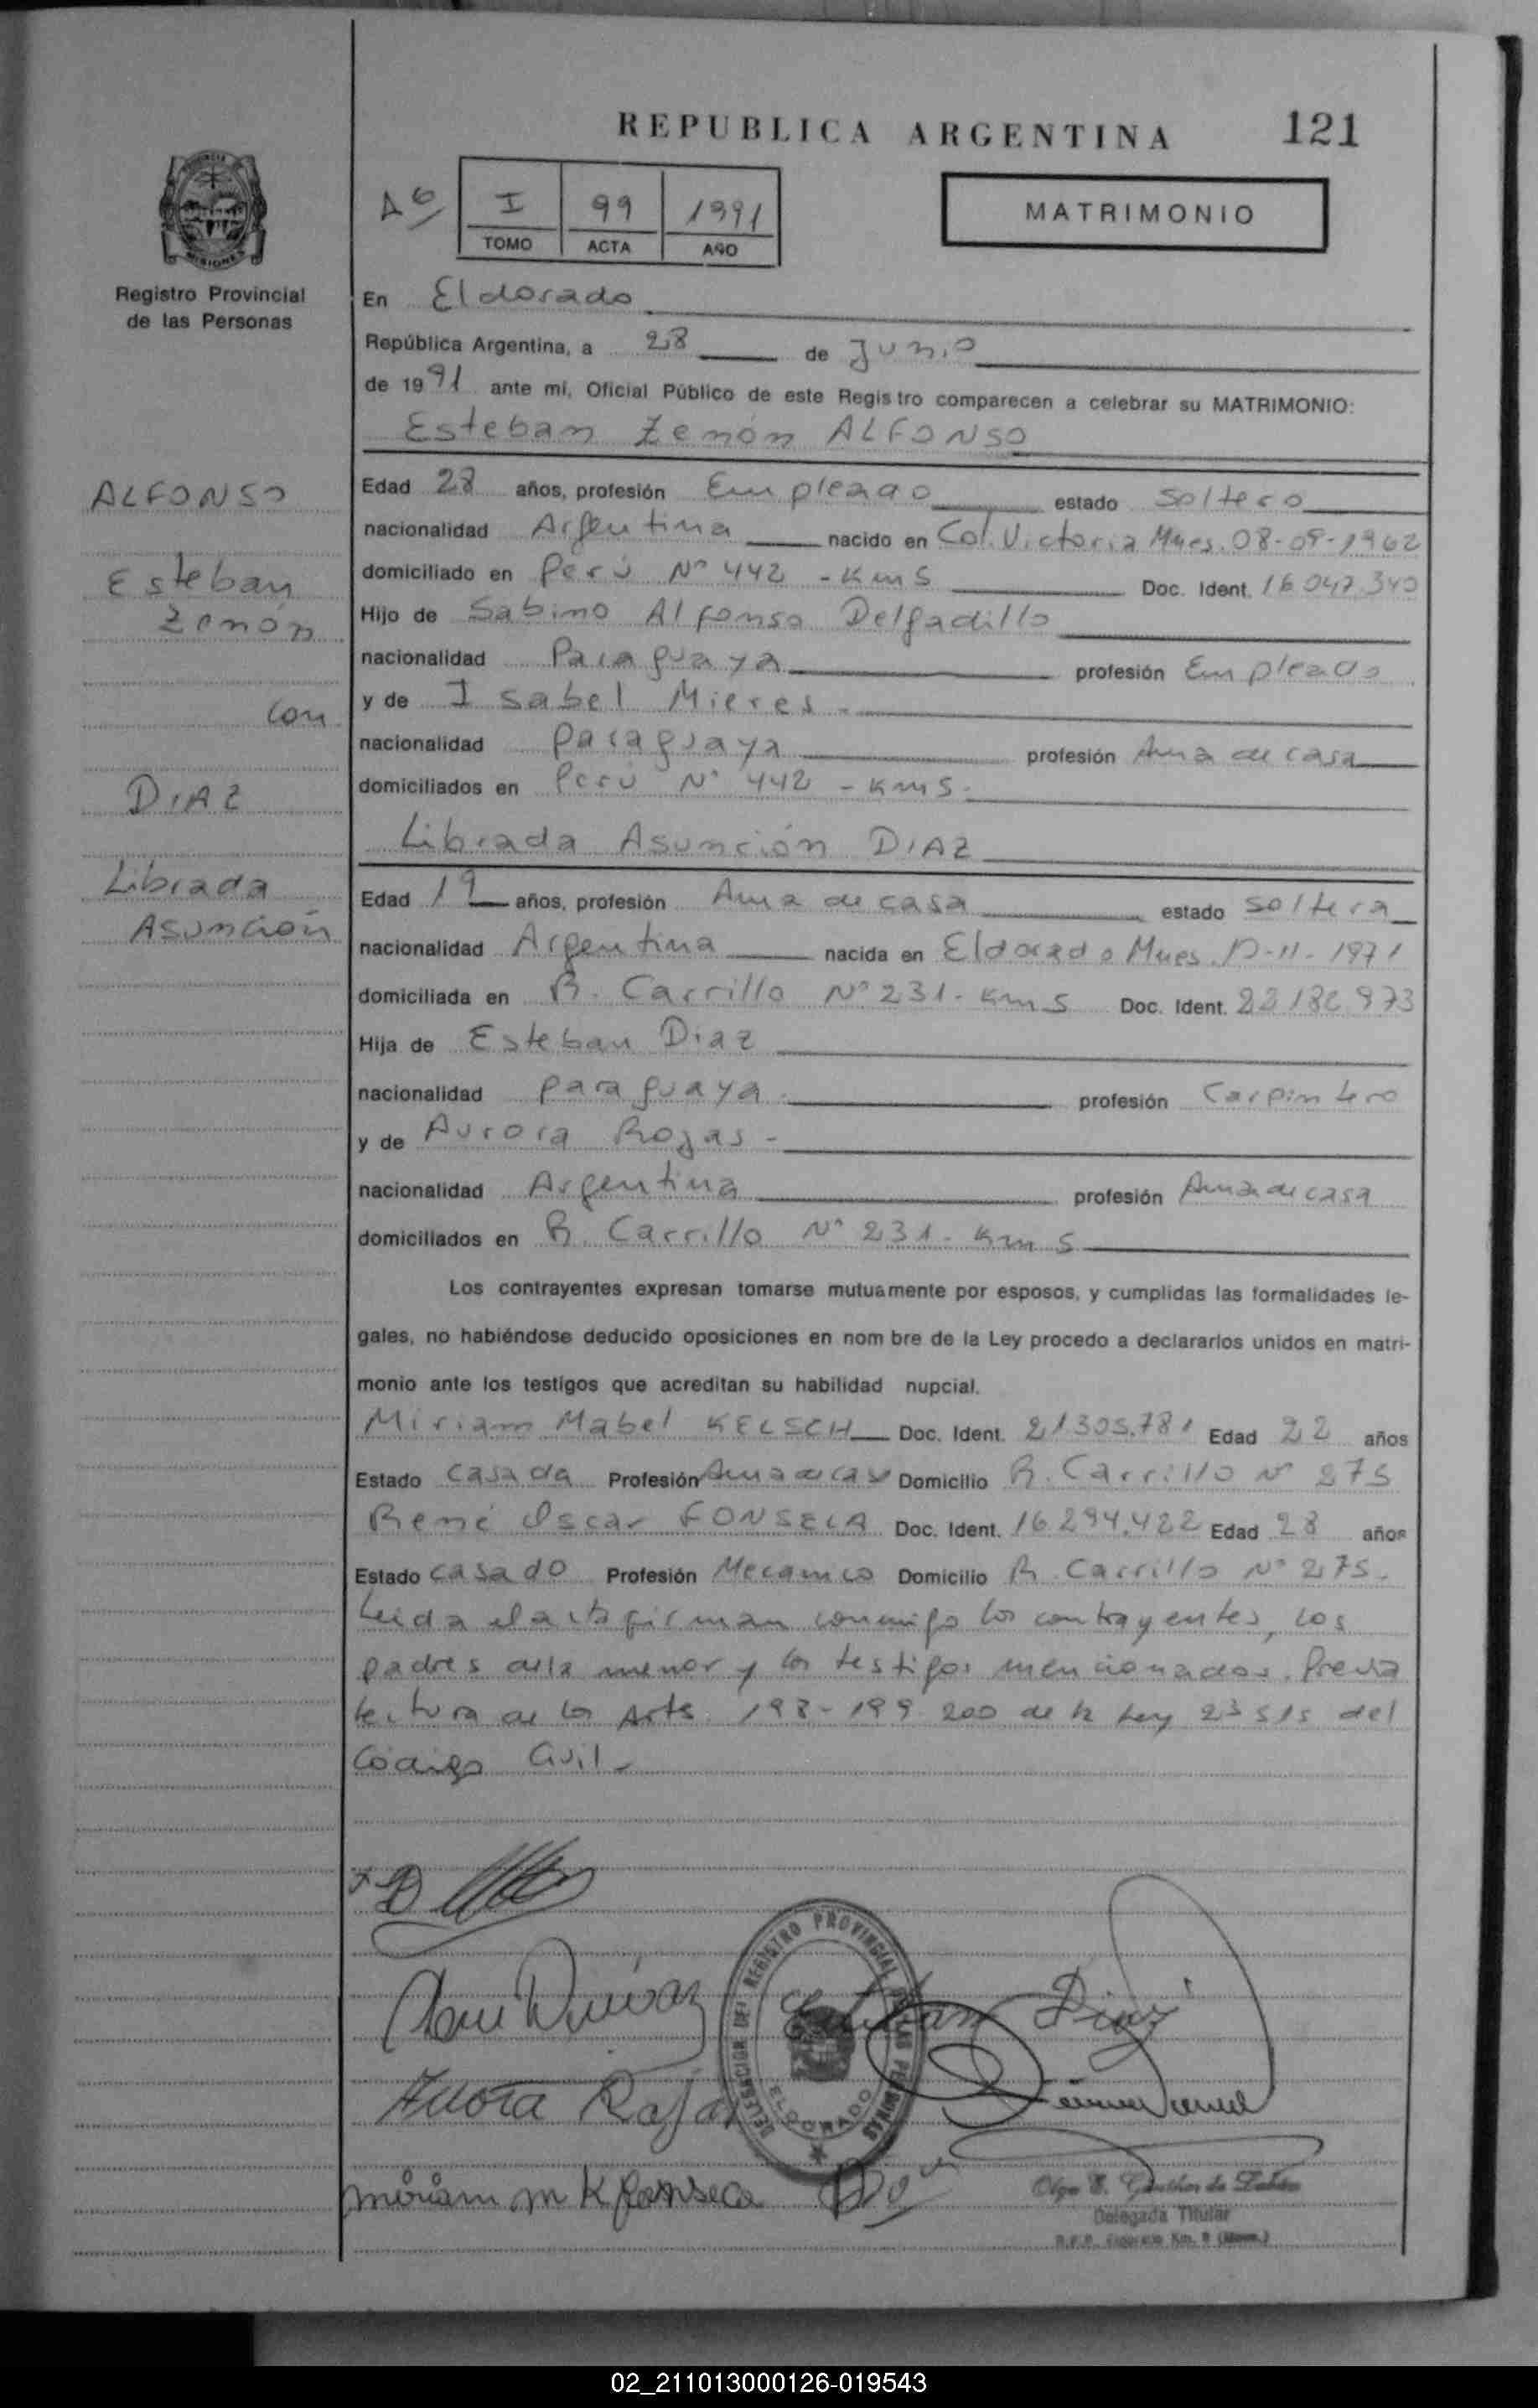 REPUBLICA ARGENTINA 121
I 99 1991
TOMO ACTA AÑO
MATRIMONIO
Registro Provincial
de las Personas
En Eldorado
República Argentina, a 28 de Junio
de 1991 ante mí, Oficial Público de este Registro comparecen a celebrar su MATRIMONIO:
Esteban Zenón ALFONSO
ALFONSO
Esteban
Zenón
con
DIAZ
Librada
Asunción
Edad 28 años, profesión Empleado estado soltero
nacionalidad Argentina nacido en Col. Victoria Mnes. 08-09-1962
domiciliado en Perú Nº 442 - Km 5 Doc. Ident. 16.047.340
Hijo de Sabino Alfonso Delgadillo
nacionalidad Paraguaya profesión Empleado
y de Isabel Mieres -
nacionalidad paraguaya profesión Ama de casa
domiciliados en Perú Nº 442 - Km 5 -
Librada Asunción DIAZ
Edad 19 años, profesión Ama de casa estado soltera
nacionalidad Argentina nacida en Eldorado Mnes. -11-1971
domiciliada en R. Carrillo Nº 231 - Km 5 Doc. Ident. 973
Hija de Esteban Diaz
nacionalidad paraguaya profesión Carpintero
y de Aurora Rojas -
nacionalidad Argentina profesión Ama de casa
domiciliados en R. Carrillo Nº 231 - Km 5
Los contrayentes expresan tomarse mutuamente por esposos, y cumplidas las formalidades le-
gales, no habiéndose deducido oposiciones en nom bre de la Ley procedo a declararlos unidos en matri-
monio ante los testigos que acreditan su habilidad nupcial.
Miriam Mabel KELSCH Doc. Ident. 21.305.781 Edad 22 años
Estado Casada Profesión Ama de casa Domicilio R. Carrillo Nº 275
René Oscar FONSECA Doc. Ident. 16.294.422 Edad 28 años
Estado casado Profesión Mecanico Domicilio R. Carrillo Nº 275-
Leida el acta firman conmigo los contrayentes, los
padres de la menor y los testigos mencionados. Previa
lectura de los Arts. 198-199-200 de la Ley 23515 del
Código Civil -
Esteban Diaz
Aurora Rojas
DELEGACION DEL REGISTRO PROVINCIAL DE LAS PERSONAS
ELDORADO
miriam m K fonseca
Delegada Titular
02_211013000126-019543